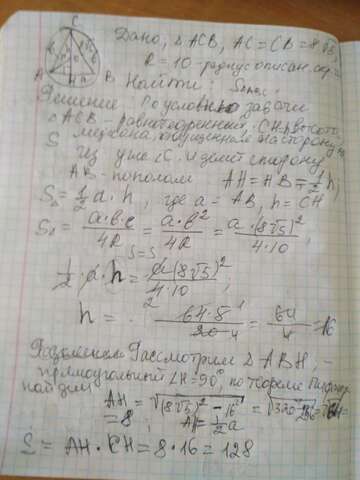 C
A H B
Дано, Δ ACB, AC = CB = 8√5,
R = 10 - радиус описан. окр.
Найти: S
Решение: По условию задачи
Δ ACB - равнобедренный, CH высота
медиана, опущенная на сторону
из угла C. И делит сторону
AB пополам AH = HB = 1/2
S△ = 1/2 a · h, где a = AB, h = CH
S△ = a·b·c / 4R = a·b² / 4R = a·(8√5)² / 4·10,
S=S
1/2 · a · h = a(8√5)² / 4·10,
h = 64·5 / 20 = 64 / 4 = 16
Рассмотрим Δ ABH, -
прямоугольный ∠H=90°, по теореме Пифагора
найдём AH = √(8√5)² - 16² = √320
= 8; AH = 1/2 a
S = AH · CH = 8 · 16 = 128